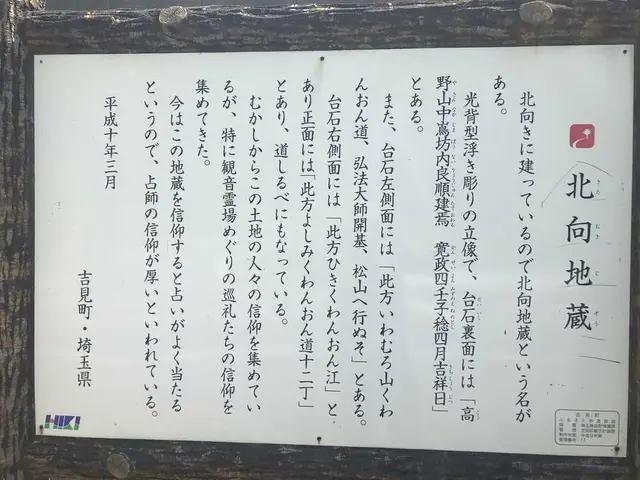 北向地蔵
きた むき じ ぞう
北向きに建っているので北向地蔵という名が
ある。
光背型浮き彫りの立像で、台石裏面には「高
野山中嶌坊内良順建焉　寛政四壬子稔四月吉祥日」
とある。
また、台石左側面には「此方いわむろ山くわ
んおん道、弘法大師開基、松山へ行ぬそ」とある。
台石右側面には「此方ひきくわんおん江」と
あり正面には「此方よしみくわんおん道十二丁」
とあり、道しるべにもなっている。
むかしからこの土地の人々の信仰を集めてい
るが、特に観音霊場めぐりの巡礼たちの信仰を
集めてきた。
今はこの地蔵を信仰すると占いがよく当たる
というので、占師の信仰が厚いといわれている。
平成十年三月
吉見町・埼玉県
HIKI